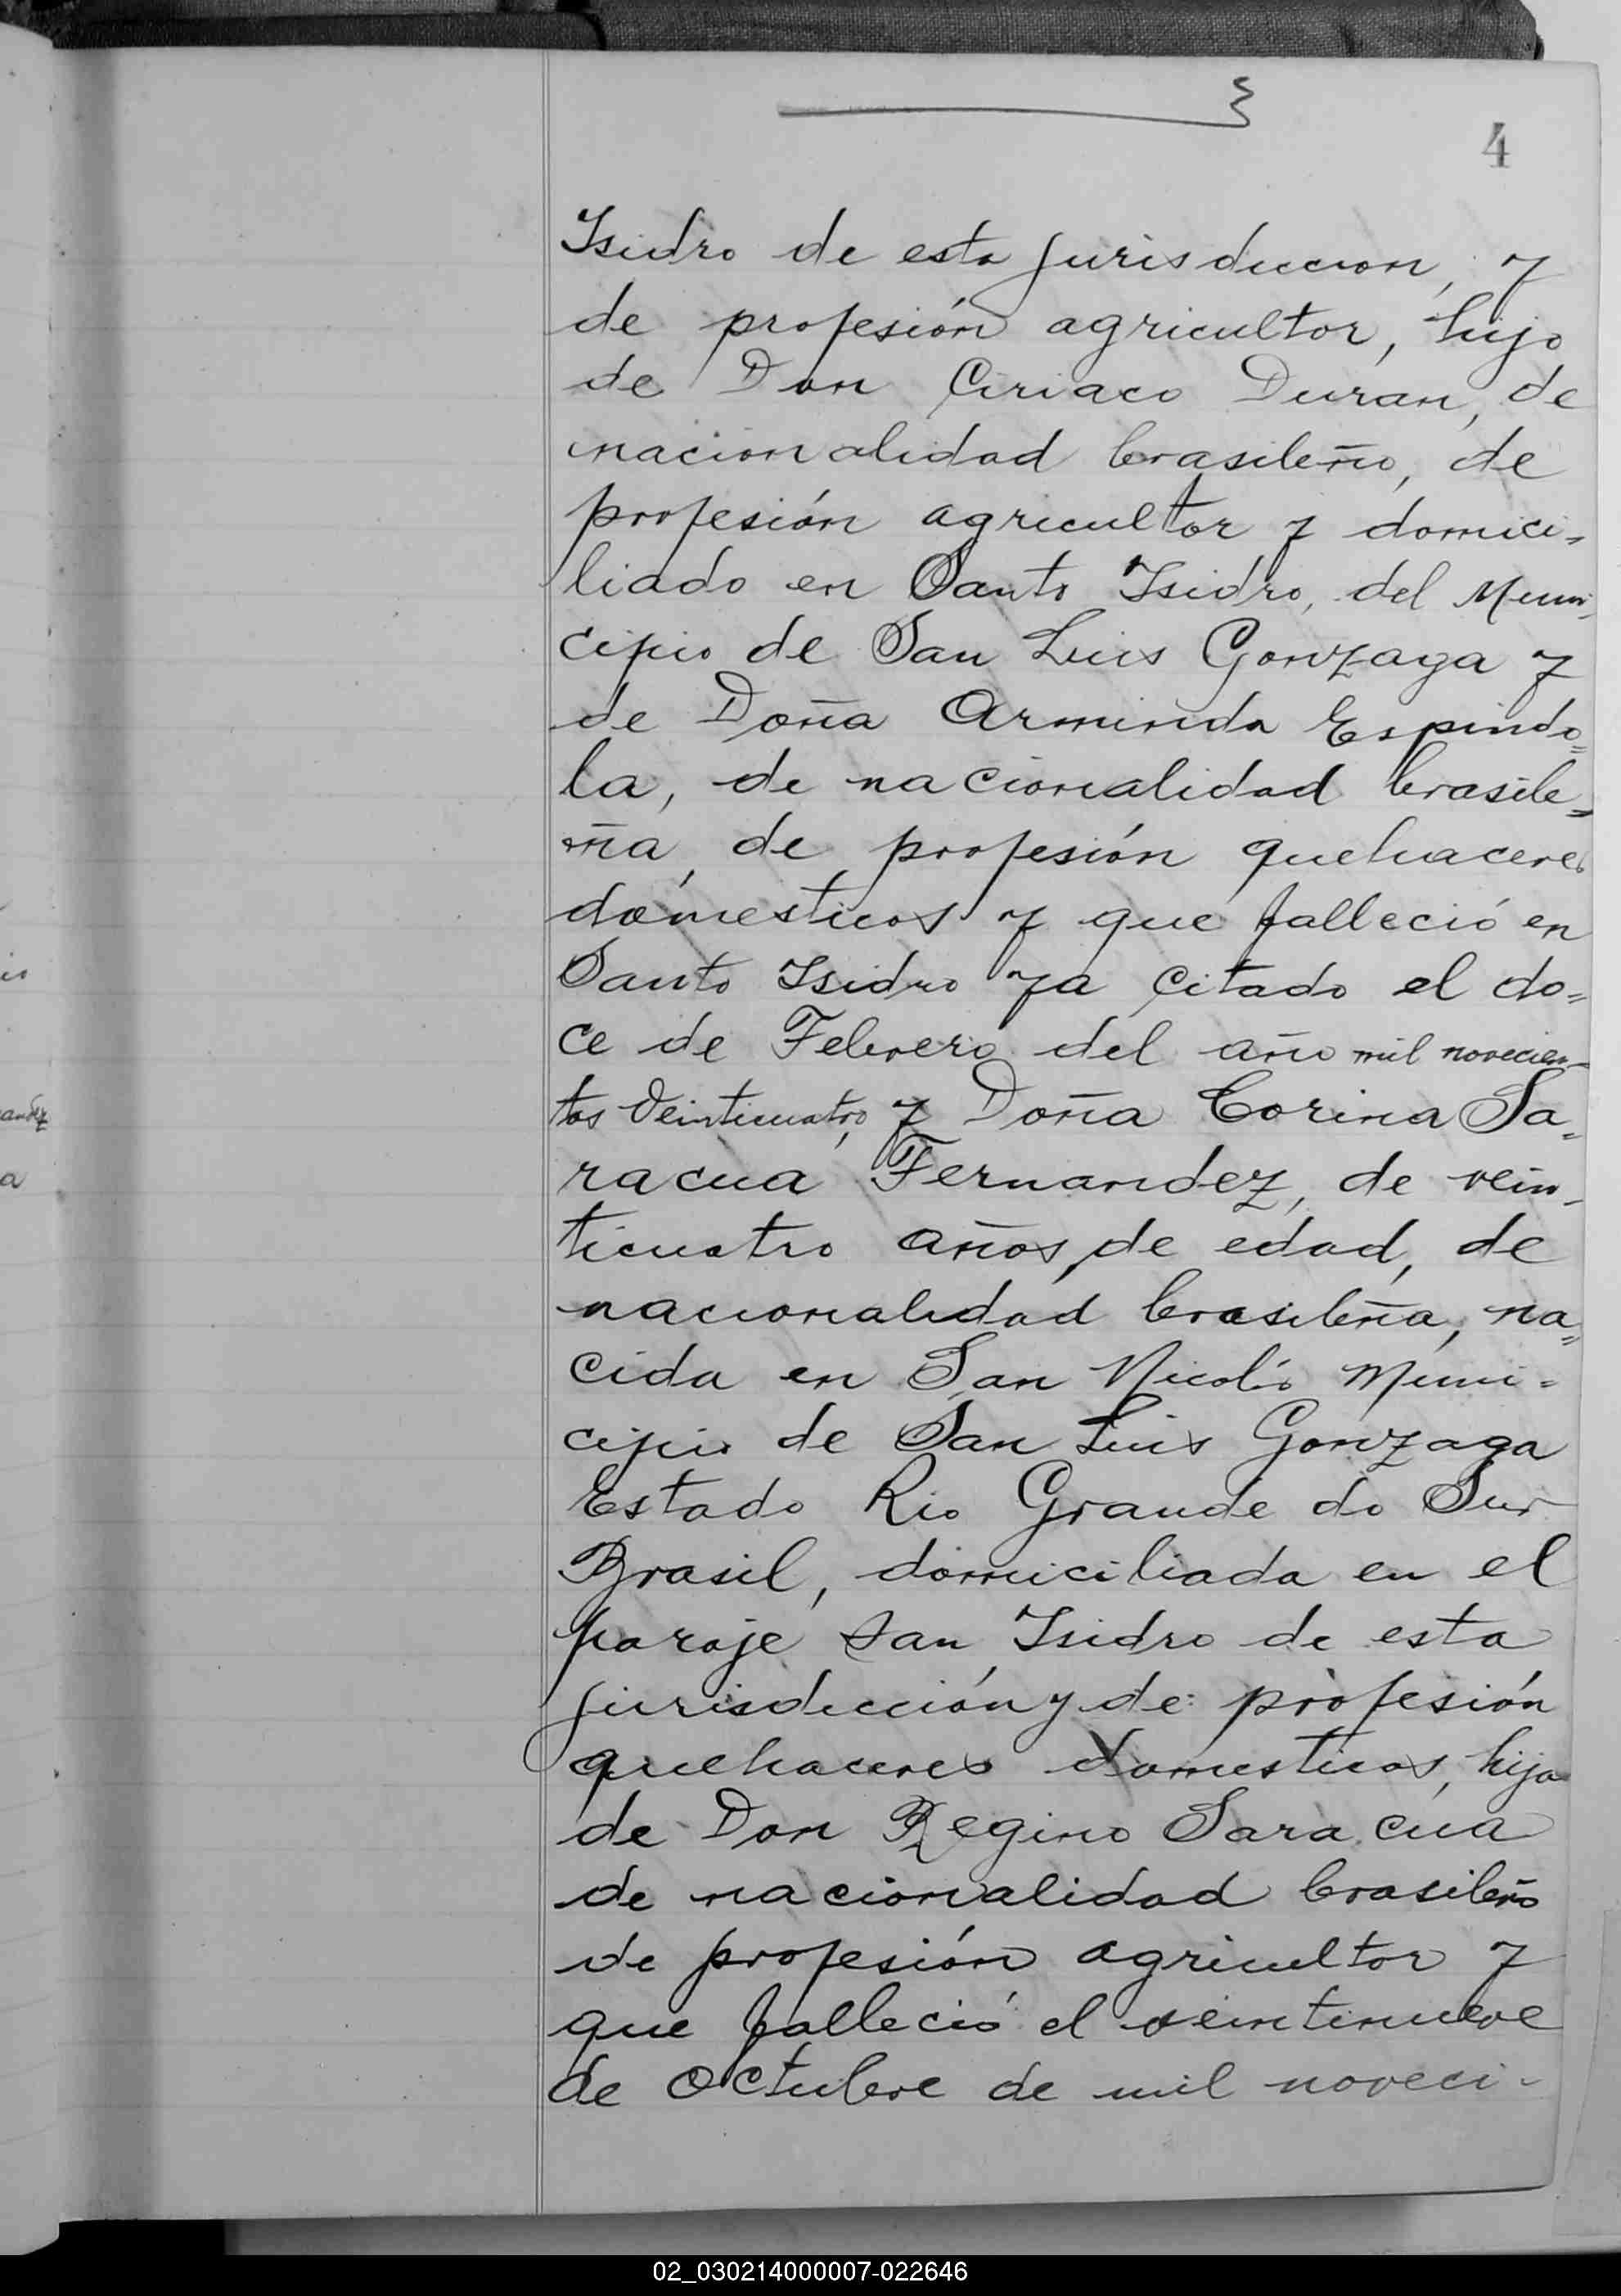 4
Isidro de esta jurisduccion, y
de profesión agricultor, hijo
de Don Ciriaco Duran, de
nacionalidad brasileño, de
profesión agricultor y domici-
liado en Santo Isidro, del Muni-
cipio de San Luis Gonzaga y
de Doña Arminda Espindo=
la, de nacionalidad brasile=
ña, de profesión quehaceres
domesticos y que falleció en
Santo Isidro ya citado el do=
ce de Febrero del año mil novecien-
tos Veinticuatro, y Doña Corina Sa-
racua Fernandez, de vein-
ticuatro años, de edad, de
nacionalidad brasileña, na=
cida en San Nicolás Muni=
cipio de San Luis Gonzaga
Estado Rio Grande do Sur
Brasil, domiciliada en el
paraje San Isidro de esta
jurisdección y de profesión
quehaceres domesticos, hija
de Don Regino Saracua
de nacionalidad brasileño
de profesión agricultor y
que falleció el veintinueve
de Octubre de mil noveci-
andez
a
02_030214000007-022646